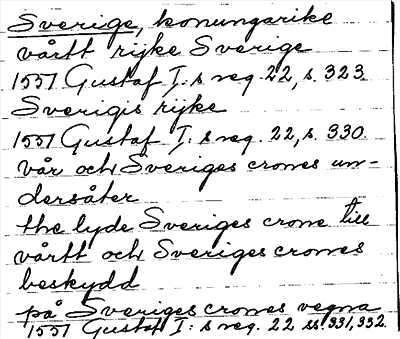 Sverige, konungarike
vårtt rijke Sverige
1551 Gustaf I:s reg. 22, s. 323.
Sverigis rijke
1551 Gustaf I:s reg. 22, s. 330.
vår och Sveriges crones un-
dersåter
the lyde Sveriges crone till
vårtt och Sveriges crones
beskydd
på Sveriges crones vegna
1551 Gustaf I:s reg. 22 ss 331, 332.